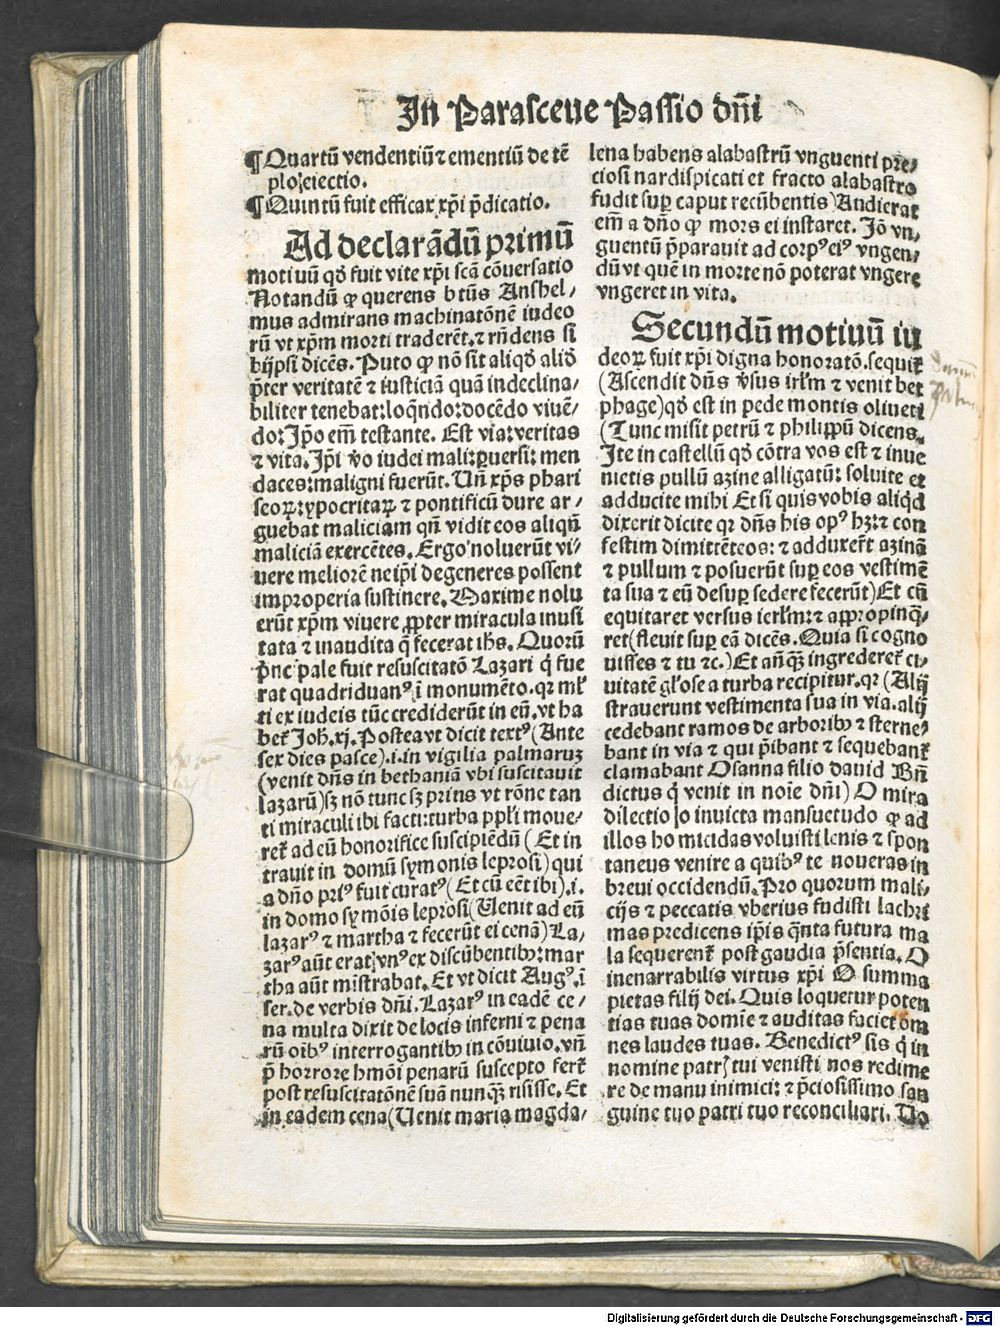 In Parasceue Passio dñi
¶ Quartũ vendentiũ ⁊ ementiũ de tẽ
ploꝛ eiectio.
¶ Quintũ fuit efficax xp̃i p̃dicatio.
Ad declarãdũ primũ
motiuũ qđ fuit vite xp̃i scã cõuersatio
Notandũ ꝙ querens btũs Anshel⸗
mus admirans machinatõnẽ iudeo
rũ vt xp̃m morti traderẽt. ⁊ rñdens si
bijpsi dicẽs. Puto ꝙ nõ sit aliqđ aliđ
p̃ter veritatẽ ⁊ iusticiã quã indeclina⸗
biliter tenebat: loq̃ndo: docẽdo viuẽ⸗
do: Ip̃o em̃ testante. Est via: veritas
⁊ vita. Ip̃i ṽo iudei mali: ꝑuersi: men
daces: maligni fuerũt. Uñ xp̃s phari
seoꝝ: ypocritaꝝ ⁊ pontificũ dure ar⸗
guebat maliciam qñ vidit eos aliqũ
maliciã exercẽtes. Ergo noluerũt vi⸗
uere meliorẽ ne ip̃i degeneres possent
improperia sustinere. Maxime nolu
erũt xp̃m viuere ꝓpter miracula inusi
tata ⁊ inaudita q̃ fecerat ihs. Quorũ
p̃ncipale fuit resuscitatõ Lazari q̃ fue
rat quadriduanꝰ ĩ monumẽto. qꝛ ml̃
ti ex iudeis tũc crediderũt in eũ. vt ha
betꝛ̃ Joh̃. xj. Postea vt dicit textꝰ (Ante
sex dies pasce) .i. in vigilia palmaruꝫ
(venit dñs in bethaniã vbi suscitauit
lazarũ) sꝫ nõ tunc sꝫ prius vt rõne tan
ti miraculi ibi facti: turba ppl̃i moue⸗
retꝛ̃ ad eũ honorifice suscipiẽdũ (Et in
trauit in domũ symonis leprosi) qui
a dño priꝰ fuit curatꝰ (Et cũ eẽt ibi) .i.
in domo symõis leprosi (Uenit ad eũ
lazarꝰ ⁊ martha ⁊ fecerũt ei cenã) La⸗
zarꝰ aũt erat vnꝰ ex discũbentibꝰ: mar
tha aũt mĩstrabat. Et vt dicit Augꝰ. ĩ
ser. de verbis dñi. Lazarꝰ in cadẽ ce⸗
na multa dixit de locis inferni ⁊ pena
rũ oĩbꝰ interrogantibꝰ in cõuiuio. vñ
p̃ horrore hmõi penarũ suscepto fertꝛ̃
post resuscitatõnẽ suã nunqꝫ risisse. Et
in eadem cena (Uenit maria magda⸗
lena habens alabastrũ vnguenti pre⸗
ciosi nardi spicati et fracto alabastro
fudit suꝑ caput recũbentis) Audierat
em̃ a dño ꝙ mors ei instaret. Jõ vn⸗
guentũ p̃parauit ad corpꝰ eiꝰ vngen⸗
dũ vt quẽ in morte nõ poterat vngere
vngeret in vita.
Secundũ motiuũ iu
deoꝝ fuit xp̃i digna honoratõ. sequitꝛ̃
(Ascendit dñs ṽsus irl̃m ⁊ venit bet
phage) qđ est in pede montis oliueti
(Tunc misit petrũ ⁊ philippũ dicens.
Ite in castellũ qđ cõtra vos est ⁊ inue
nietis pullũ azine alligatũ: soluite et
adducite mihi Et si quis vobis aliqđ
dixerit dicite qꝛ dñs his opꝰ hꝫ: ⁊ con
festim dimittẽt eos: ⁊ adduxer̃t azinã
⁊ pullum ⁊ posuerũt suꝑ eos vestimẽ
ta sua ⁊ eũ desuꝑ sedere fecerũt) Et cũ
equitaret versus ierl̃m: ⁊ appropinq̃⸗
ret (fleuit suꝑ eã dicẽs. Quia si cogno
uisses ⁊ tu ⁊c.) Et añqꝫ ingrederetꝛ̃ ci⸗
uitatẽ gl̃ose a turba recipitur. qꝛ (Alij
strauerunt vestimenta sua in via. alij
cedebant ramos de arboribꝰ ⁊ sterne⸗
bant in via ⁊ qui p̃ibant ⁊ sequebantꝛ̃
clamabant Osanna filio dauid Bñ
dictus q̃ venit in noĩe dñi) O mira
dilectio o inuicta mansuetudo ꝙ ad
illos homicidas voluisti lenis ⁊ spon
taneus venire a quibꝰ te noueras in
breui occidendũ. Pro quorum mali⸗
cijs ⁊ peccatis vberius fudisti lachri
mas predicens ip̃is q̃nta futura ma
la sequerentꝛ̃ post gaudia p̃sentia. O
inenarrabilis virtus xp̃i O summa
pietas filij dei. Quis loquetur poten
tias tuas domĩe ⁊ auditas faciet om
nes laudes tuas. Benedictꝰ sis q̃ in
nomine patrꝭ tui venisti nos redime
re de manu inimici: ⁊ p̃ciosissimo san
guine tuo patri tuo reconciliari. Uo
Digitalisierung gefördert durch die Deutsche Forschungsgemeinschaft - DFG